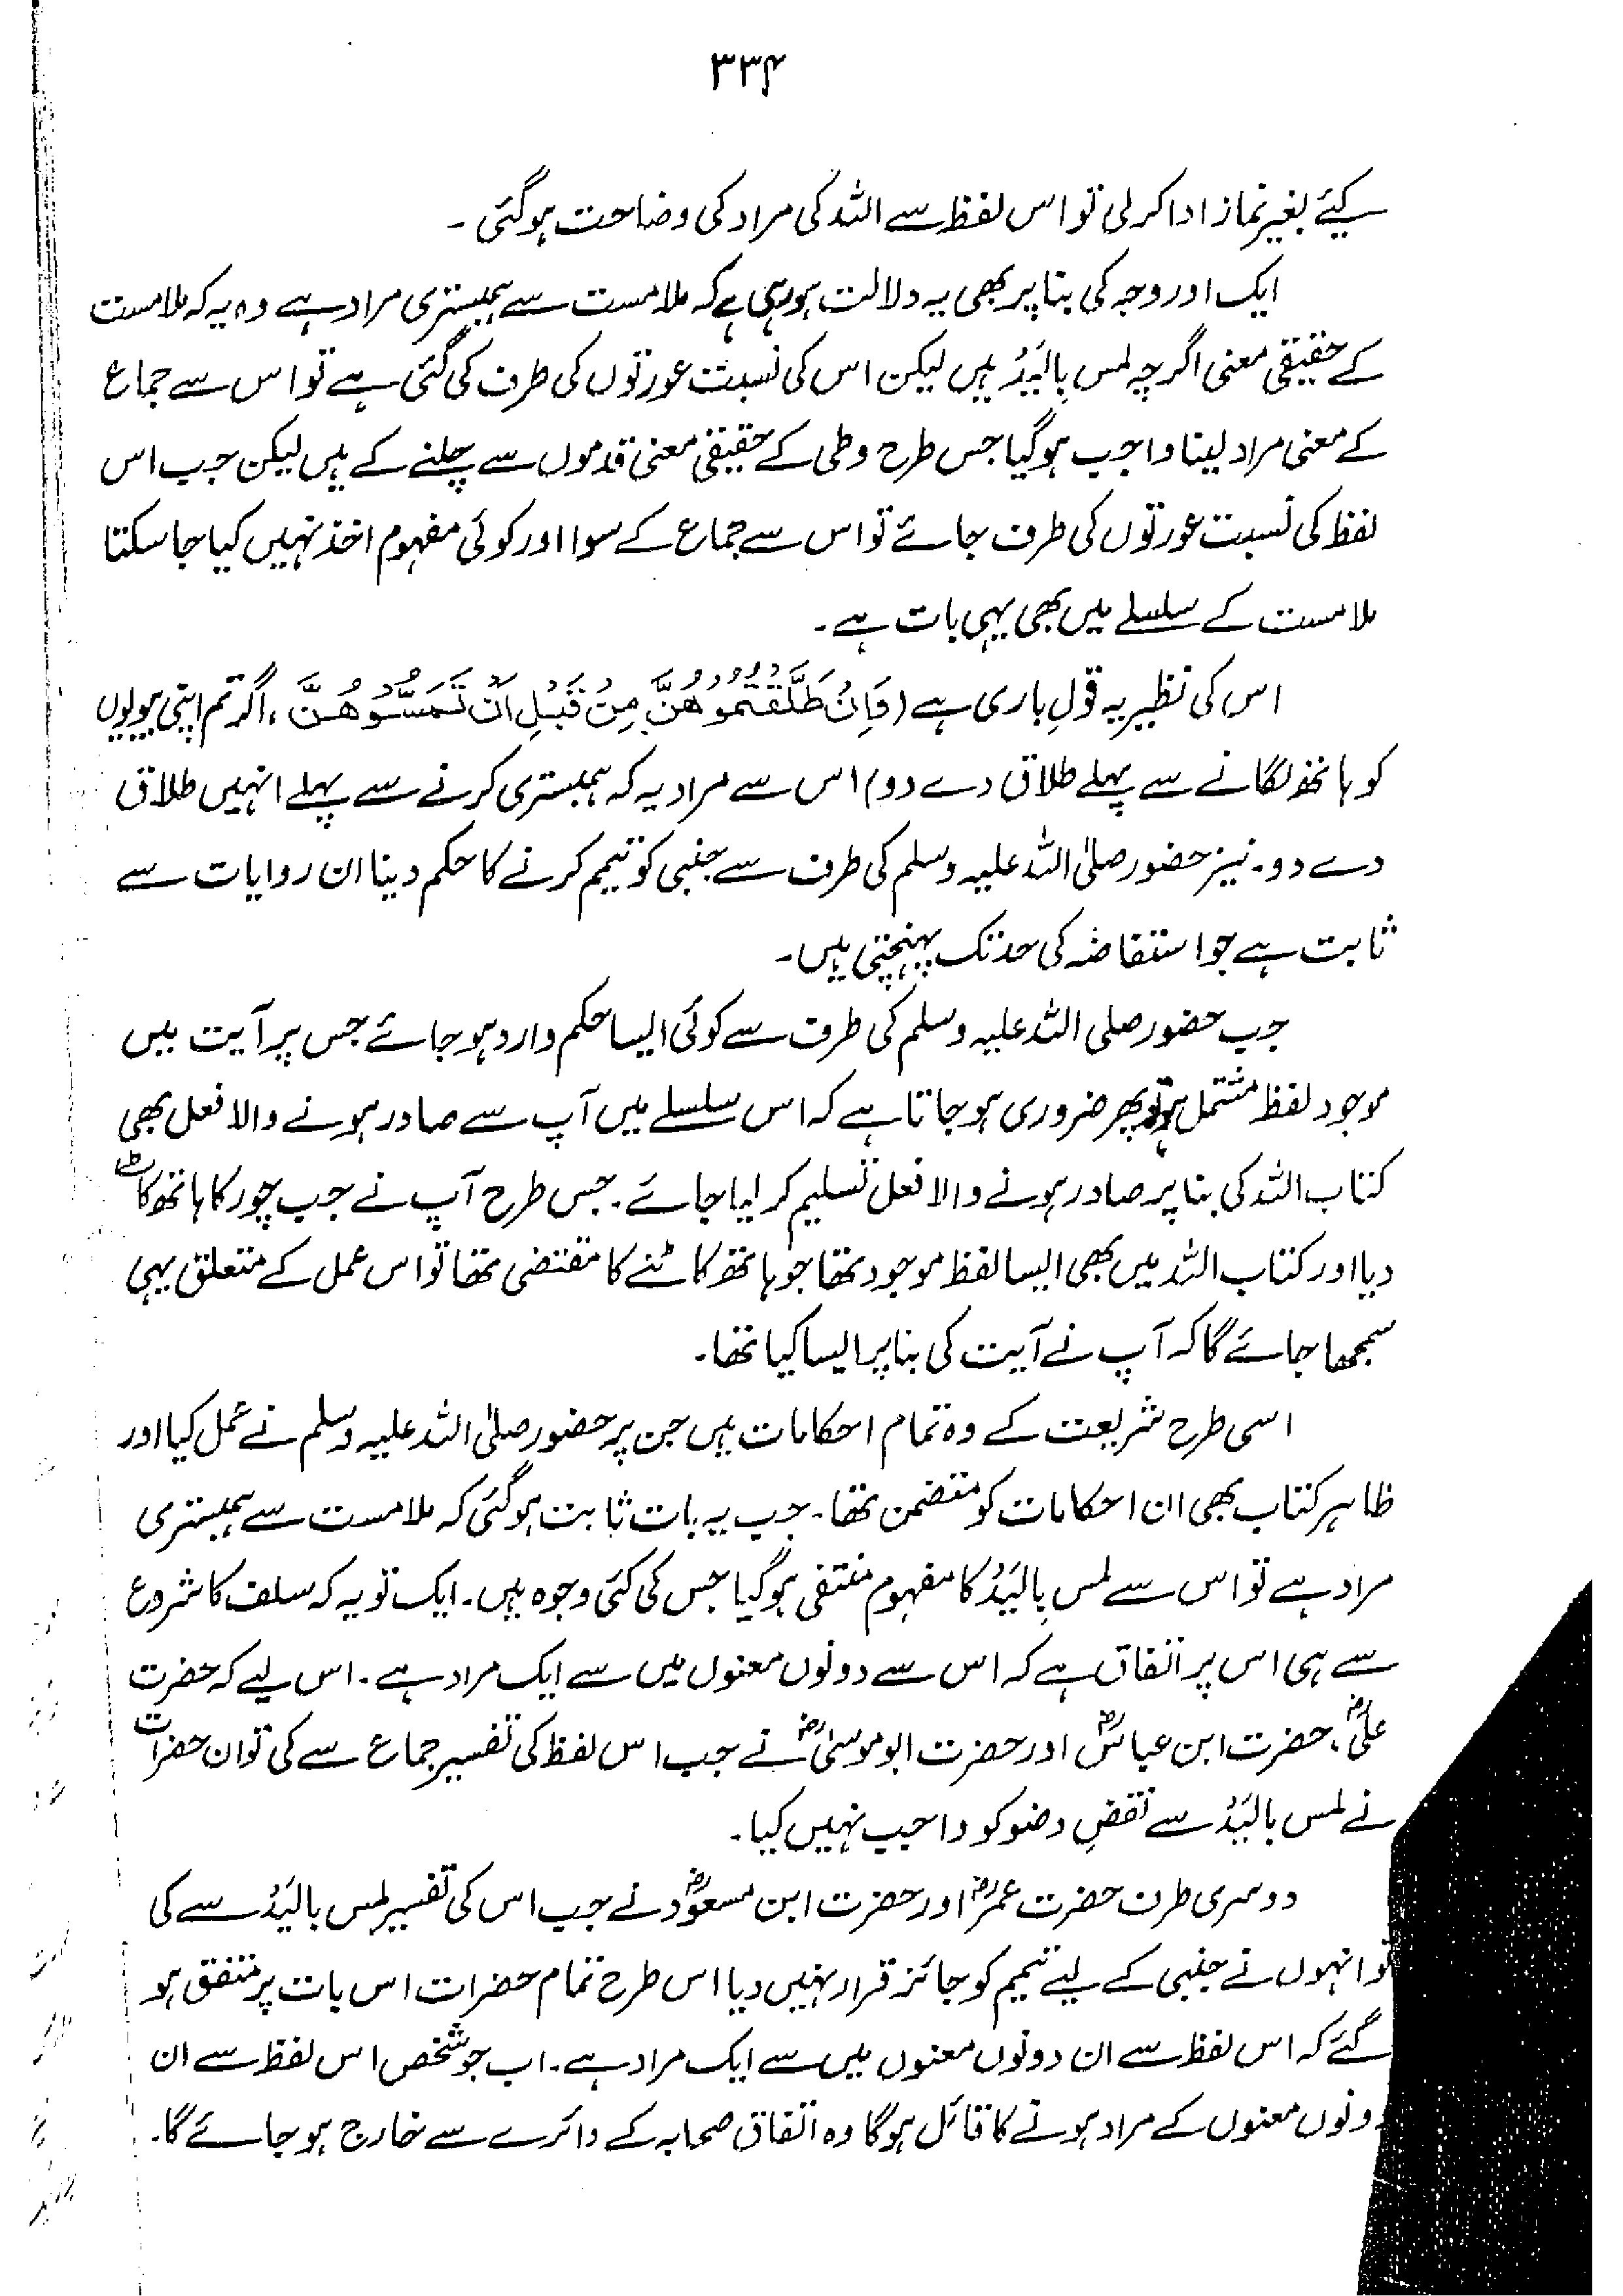 ۳۳۴
کیئے بغیر نماز ادا کر لی تو اس لفظ سے اللہ کی مراد کی وضاحت ہو گئی ۔
ایک اور وجہ کی بنا پر بھی یہ دلالت ہو رہی ہے کہ ملامست سے ہمبستری مراد ہے وہ یہ کہ ملامست
کے حقیقی معنی اگرچہ لمس بِالیَدُ ہیں لیکن اس کی نسبت عورتوں کی طرف کی گئی ہے تو اس سے جماع
کے معنی مراد لینا واجب ہو گیا جس طرح وطی کے حقیقی معنی قدموں سے چلنے کے ہیں لیکن جب اس
لفظ کی نسبت عورتوں کی طرف جائے تو اس سے جماع کے سوا اور کوئی مفہوم اخذ نہیں کیا جا سکتا
ملامست کے سلسلے میں بھی یہی بات ہے ۔
اس کی نظیر یہ قولِ باری ہے (وَاِنْ طَلَّقْتُمُوْهُنَّ مِنْ قَبْلِ اَنْ تَمَسُّوْهُنَّ ، اگر تم اپنی بیویوں
کو ہاتھ لگانے سے پہلے طلاق دے دو) اس سے مراد یہ کہ ہمبستری کرنے سے پہلے انہیں طلاق
دے دو۔ نیز حضور صلی اللہ علیہ وسلم کی طرف سے جنبی کو تیمم کرنے کا حکم دینا ان روایات سے
ثابت ہے جو استفاضہ کی حد تک پہنچتی ہیں۔
جب حضور صلی اللہ علیہ وسلم کی طرف سے کوئی ایسا حکم وارد ہو جائے جس پر آیت میں
موجود لفظ مشتمل ہو تو پھر ضروری ہو جاتا ہے کہ اس سلسلے میں آپ سے صادر ہونے والا فعل بھی
کتاب اللہ کی بنا پر صادر ہونے والا فعل تسلیم کر لیا جائے ۔ جس طرح آپ نے جب چور کا ہاتھ کاٹ
دیا اور کتاب اللہ میں بھی ایسا لفظ موجود تھا جو ہاتھ کاٹنے کا مقتضی تھا تو اس عمل کے متعلق یہی
سمجھا جائے گا کہ آپ نے آیت کی بنا پر ایسا کیا تھا۔
اسی طرح شریعت کے وہ تمام احکامات ہیں جن پر حضور صلی اللہ علیہ وسلم نے عمل کیا اور
ظاہر کتاب بھی ان احکامات کو متضمن تھا۔ جب یہ بات ثابت ہو گئی کہ ملامست سے ہمبستری
مراد ہے تو اس سے لمس بِالیَدُ کا مفہوم منتفی ہو گیا جس کی کئی وجوہ ہیں۔ ایک تو یہ کہ سلف کا شروع
سے ہی اس پر اتفاق ہے کہ اس سے دونوں معنوں میں سے ایک مراد ہے ۔ اس لیے کہ حضرت
علیؓ، حضرت ابن عباسؓ اور حضرت ابو موسیٰؓ نے جب اس لفظ کی تفسیر جماع سے کی تو ان حضرات
نے لمس بالیَدُ سے نقضِ وضو کو واجب نہیں کیا ۔
دوسری طرف حضرت عمرؓ اور حضرت ابن مسعودؓ نے جب اس کی تفسیر لمس بالیَدُ سے کی
تو انہوں نے جنبی کے لیے تیمم کو جائز قرار نہیں دیا اس طرح تمام حضرات اس بات پر متفق ہو
گئے کہ اس لفظ سے ان دونوں معنوں میں سے ایک مراد ہے ۔ اب جو شخص اس لفظ سے ان
دونوں معنوں کے مراد ہونے کا قائل ہو گا وہ اتفاق صحابہ کے دائرے سے خارج ہو جائے گا۔